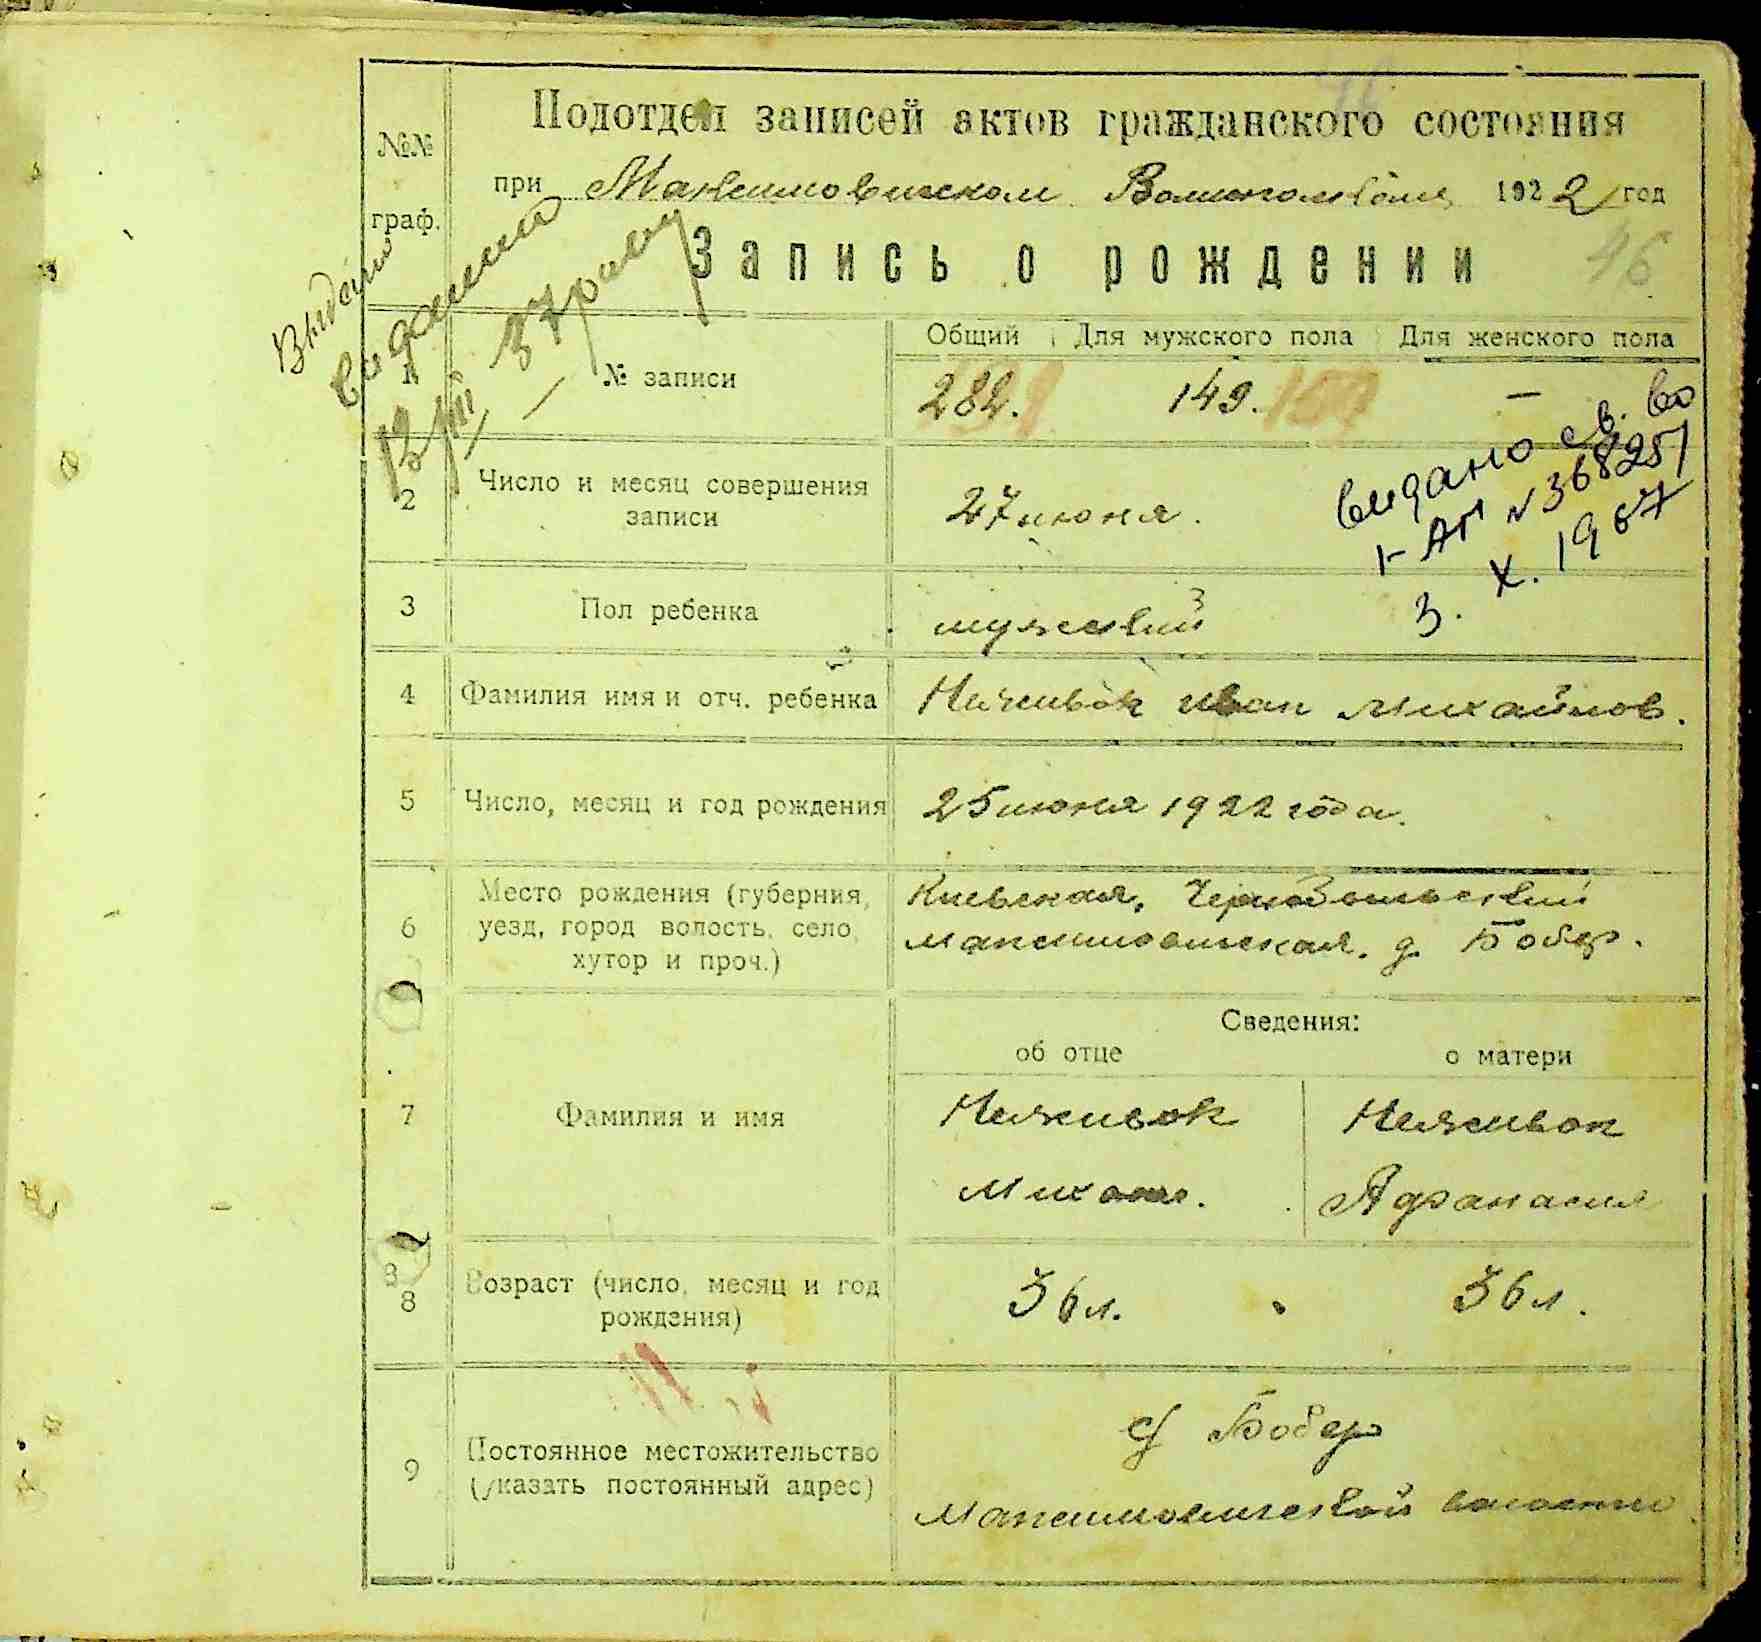 Подотдел записей актов гражданского состояния
№№ граф.
при Максимовичском 1922 год
Запись о рождении
46
Выдано
видання
12/III 37 року
Общий Для мужского пола Для женского пола
1 № записи 282. 149. —
видано св. во
I-АП № 368251
3. X. 1967
2 Число и месяц совершения
записи
27 июня.
3 Пол ребенка мужской
4 Фамилия имя и отч. ребенка Неживок Иван Михайлов.
5 Число, месяц и год рождения 25 июня 1922 года.
6 Место рождения (губерния,
уезд, город волость, село,
хутор и проч.)
Киевская, Чернобыльский
Максимовичская. д. Бобер.
Сведения:
об отце о матери
7 Фамилия и имя
Неживок Неживок
Михаил. Афанасия
8 Возраст (число, месяц и год
рождения)
36 л. 36 л.
9 Постоянное местожительство
(указать постоянный адрес)
с. Бобер
Максимовичской волости